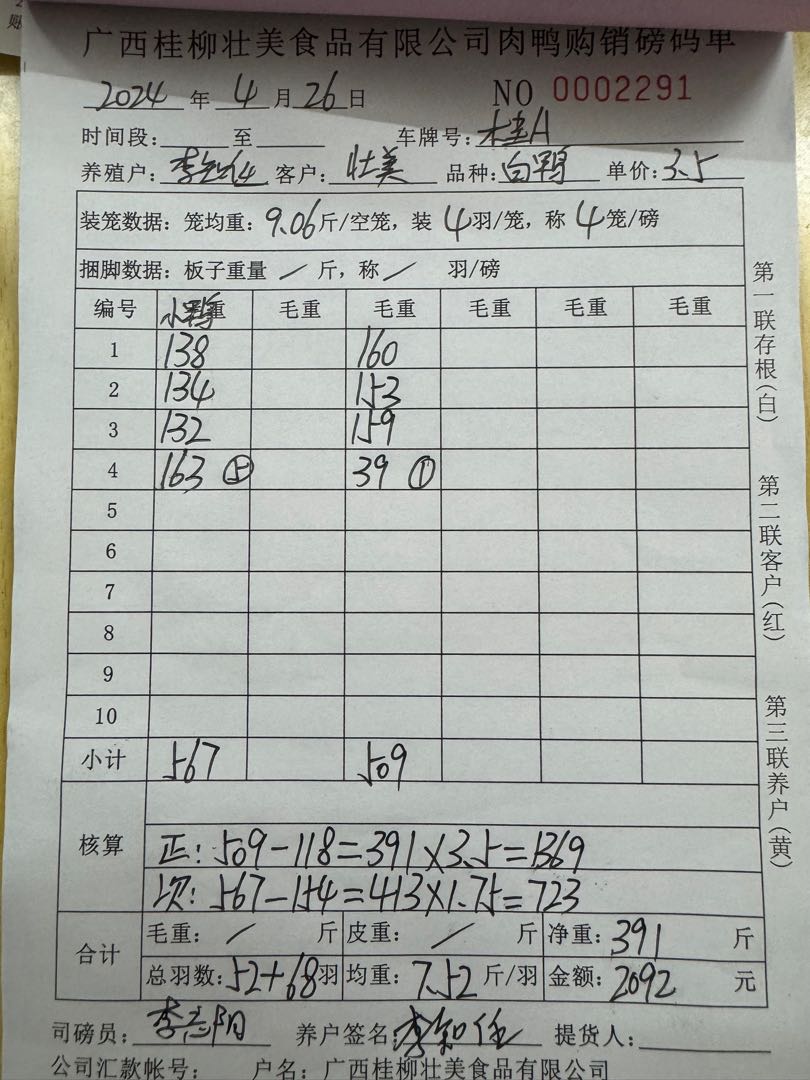 广西桂柳壮美食品有限公司肉鸭购销磅码单
2024 年 4 月 26 日 NO 0002291
时间段: 至 车牌号: 木桂A
养殖户: 李 客户: 壮美 品种: 白鸭 单价: 3.5
装笼数据: 笼均重: 9.06 斤/空笼, 装 4 羽/笼, 称 4 笼/磅
捆脚数据: 板子重量 / 斤, 称 / 羽/磅
编号 小鸭重 毛重 毛重 毛重 毛重 毛重
1 138 160
2 134 153
3 132 159
4 163 ⑤ 39 ①
5
6
7
8
9
10
小计 567 509
核算
正: 509-118=391×3.5=1369
次: 567-154=413×1.75=723
合计
毛重: / 斤 皮重: / 斤 净重: 391 斤
总羽数: 52+68 羽 均重: 7.52 斤/羽 金额: 2092 元
司磅员: 李志阳 养户签名: 李知任 提货人:
公司汇款帐号: 户名: 广西桂柳壮美食品有限公司
第一联存根(白)
第二联客户(红)
第三联养户(黄)